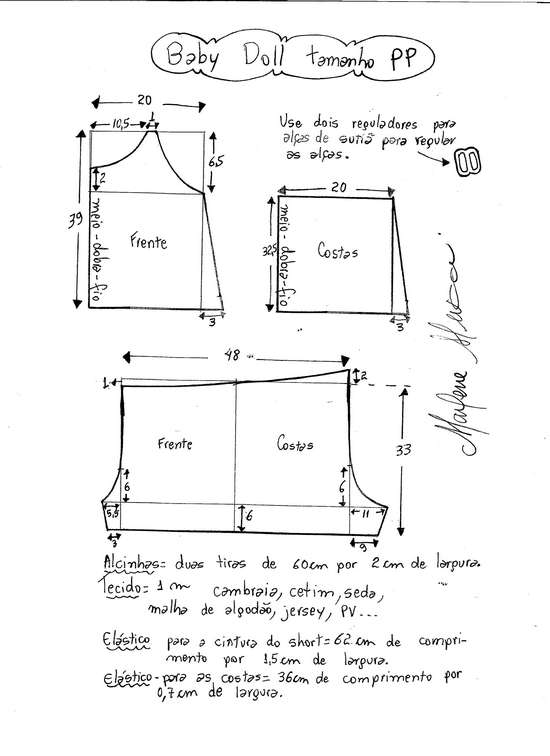 Baby Doll tamanho PP
20
10,5
1
Use dois reguladores para
alças de sutiã para regular
as alças.
6,5
2
39
meio-dobra-fio
Frente
3
20
32,5
meio-dobra-fio
Costas
3
Marlene Mukai
48
1
2
Frente
Costas
33
6
6
5,5
6
11
3
9
Alcinhas= duas tiras de 60cm por 2cm de largura.
Tecido= 1m cambraia, cetim, seda,
malha de algodão, jersey, PV...
Elástico para a cintura do short= 62 cm de compri-
mento por 1,5cm de largura.
Elástico-para as costas= 36cm de comprimento por
0,7cm de largura.